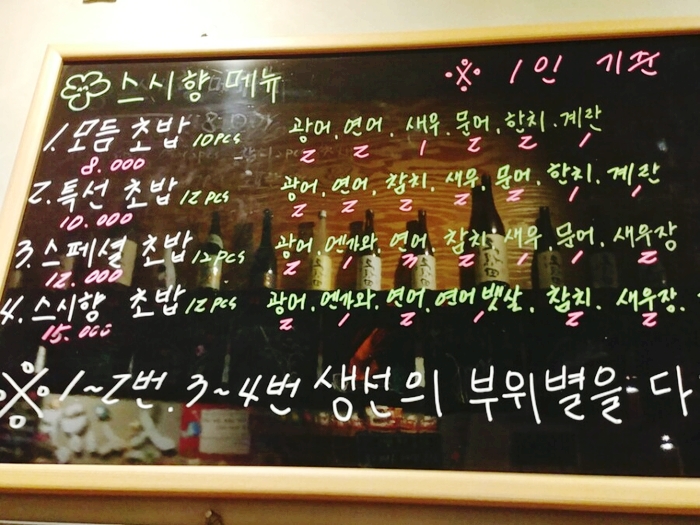 스시향 메뉴 ※ 1인 기준
1. 모듬 초밥 10pcs 광어, 연어, 새우, 문어, 한치, 계란
8.000 2 2 1 2 2 1
2. 특선 초밥 12pcs 광어, 연어, 참치, 새우, 문어, 한치, 계란
10.000 2 2 2 2 2 1 1
3. 스페셜 초밥 12pcs 광어, 엔가와, 연어, 참치, 새우, 문어, 새우장
12.000 2 1 3 2 1 1 2
4. 스시향 초밥 12pcs 광어, 엔가와, 연어, 연어뱃살, 참치, 새우장.
15.000 2 1 2 1 2 2
※ 1~2번. 3~4번 생선의 부위별을 다